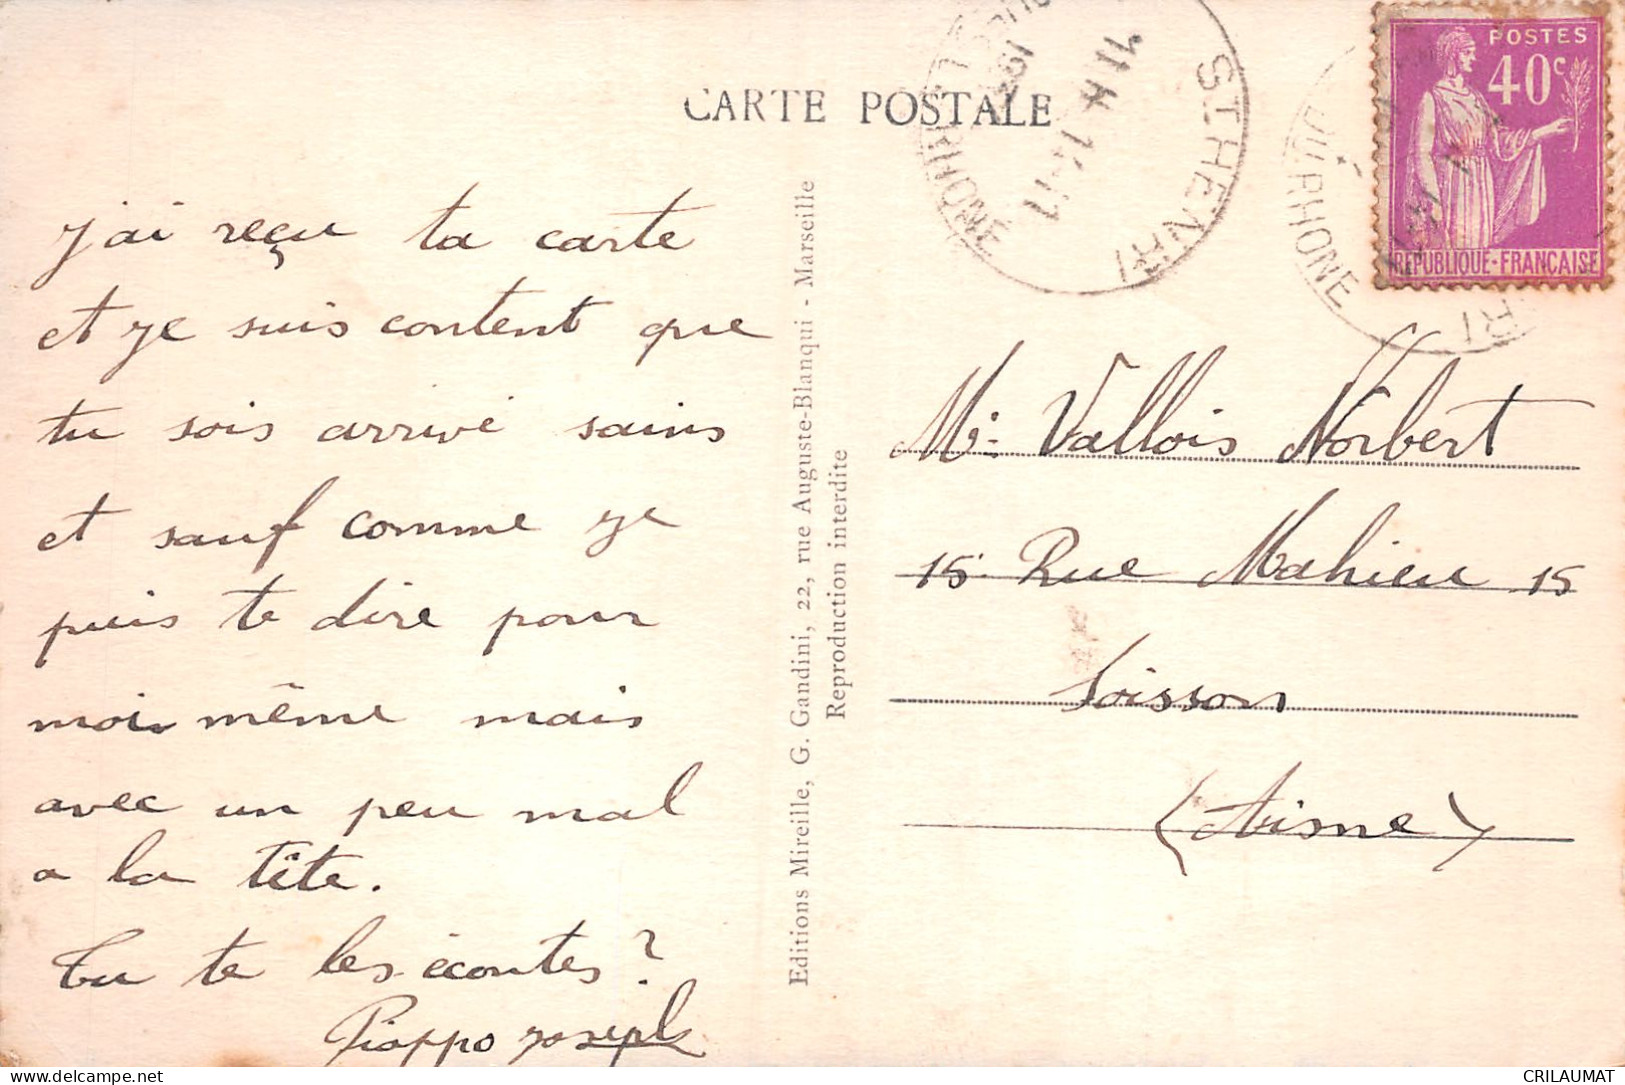 CARTE POSTALE
j'ai reçu ta carte
et je suis content que
tu sois arrivé sains
et sauf comme je
puis te dire pour
moi même mais
avec un peu mal
a la tête.
Tu te les écoutes ?
Pioppo Joseph
Editions Mireille, G. Gandini, 22, rue Auguste-Blanqui - Marseille
Reproduction interdite
ST HENRI
DU RHONE
POSTES
40c
REPUBLIQUE-FRANÇAISE
Mr: Vallois Norbert
15. Rue Mahieu 15
Soisson
(Aisne)
CRILAUMAT